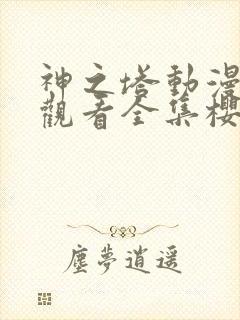 神之塔動漫
觀看全集櫻
塵夢逍遥